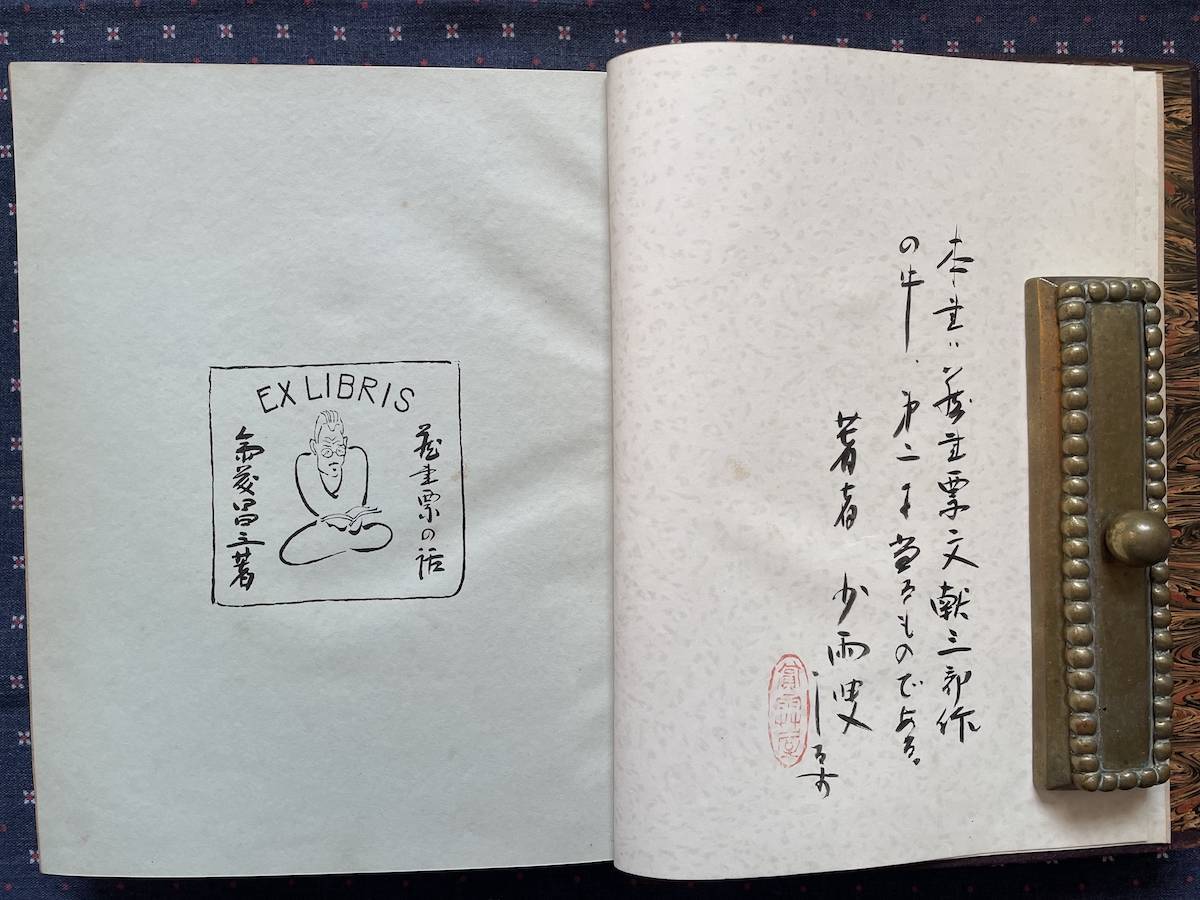 本書は藏書票文献三部作
の中、第二に当るものである。
著者 少雨叟しるす
EX LIBRIS
藏書票の話
斎藤昌三著